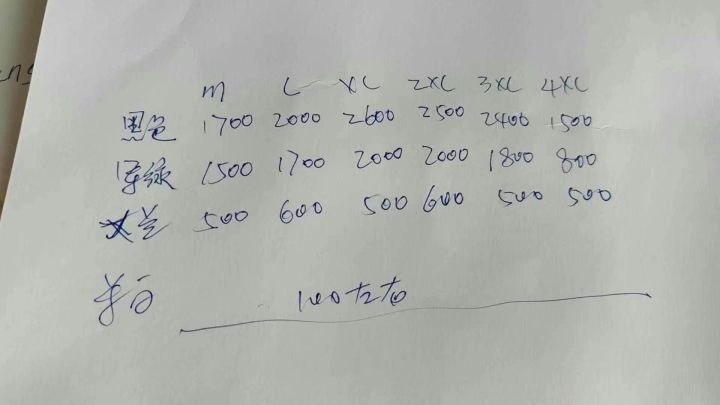 M L XL 2XL 3XL 4XL
黑色 1700 2000 2600 2500 2400 1500
军绿 1500 1700 2000 2000 1800 800
500 600 500 600 500 500
100左右